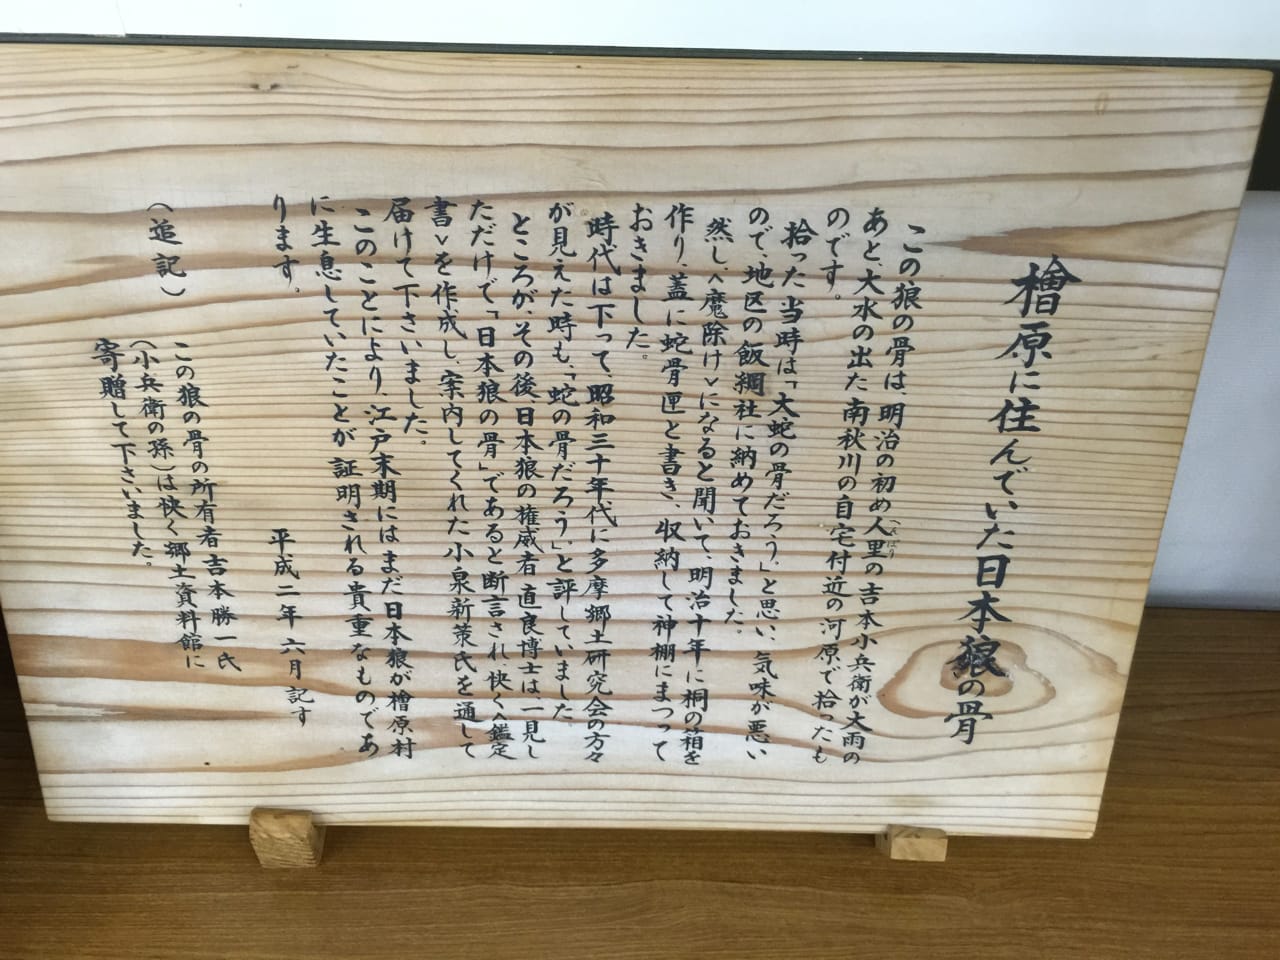 檜原に住んでいた日本狼の骨
この狼の骨は、明治の初め人里の吉本小兵衛が大雨の
へんぼり
あと、大水の出た南秋川の自宅付近の河原で拾ったも
のです。
拾った当時は「大蛇の骨だろう」と思い、気味が悪い
ので、地区の飯綱社に納めておきました。
然し、<魔除け>になると聞いて、明治十年に桐の箱を
作り、蓋に蛇骨匣と書き、収納して神棚にまつって
おきました。
時代は下って、昭和三十年代に多摩郷土研究会の方々
が見えた時も、「蛇の骨だろう」と評していました。
ところが、その後日本狼の権威者直良博士は、一見し
ただけで、「日本狼の骨」であると断言され、快く<鑑定
書>を作成し、案内してくれた小泉新策氏を通して
届けて下さいました。
このことにより、江戸末期にはまだ日本狼が檜原村
に生息していたことが証明される貴重なものであ
ります。
平成二年六月記す
(追記)
この狼の骨の所有者吉本勝一氏
(小兵衛の孫)は快く郷土資料館に
寄贈して下さいました。